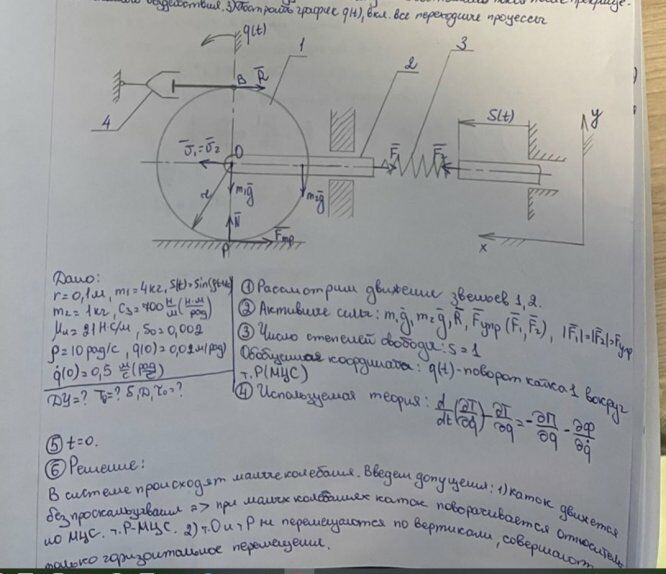 воздействия. 3) Построить график q(t), вкл. все переходные процессы
q(t)
1
3
2
B
R
S(t)
y
4
O
F₁
F₂
m₁g
m₂g
r
N
P
Fтр
x
Дано:
r=0,1м, m₁=4кг, S(t)=S₀sin(pt+
m₂=1кг, C₃=700 Н/м (Н·м/рад)
μ₄=21 Н·с/м, S₀=0,002
p=10 рад/с, q(0)=0,02м(рад)
q̇(0)=0,5 м/с (рад/с)
ДУ=?
① Рассмотрим движение звеньев 1, 2.
② Активные силы: m₁g, m₂g, R, Fупр (F₁, F₂), |F₁|=|F₂|=Fупр
③ Число степеней свободы: s=1
Обобщенная координата: q(t)-поворот катка 1 вокруг
т.P(МЦС)
④ Используемая теория: d/dt(∂T/∂q̇)-∂T/∂q=-∂П/∂q-∂Ф/∂q̇
⑤ t=0.
⑥ Решение:
В системе происходят малые колебания. Введем допущения: 1) каток движется
без проскальзывания => при малых колебаниях каток поворачивается относитель
но МЦС. т.P-МЦС. 2) т.O и т.P не перемещаются по вертикали, совершают
только горизонтальное перемещения.